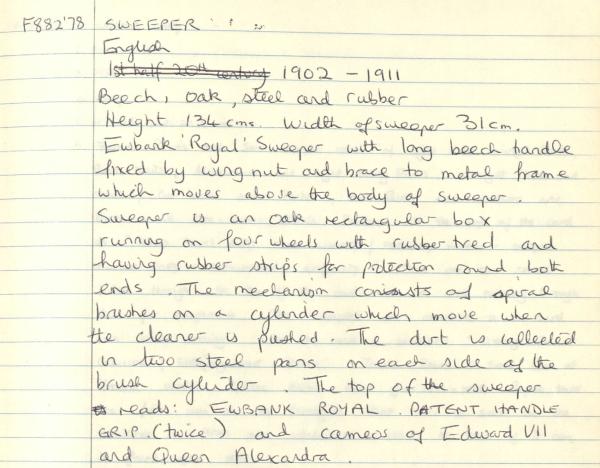 F882'78 SWEEPER
English
1st half 20th century 1902 - 1911
Beech, oak, steel and rubber
Height 134 cms. Width of sweeper 31cm.
Ewbank 'Royal' Sweeper with long beech handle
fixed by wing nut and brace to metal frame
which moves above the body of sweeper.
Sweeper is an oak rectangular box
running on four wheels with rubber tred and
having rubber strips for protection round both
ends. The mechanism consists of spiral
brushes on a cylinder which move when
the cleaner is pushed. The dirt is collected
in two steel pans on each side of the
brush cylinder. The top of the sweeper
reads: EWBANK ROYAL. PATENT HANDLE
GRIP. (twice) and cameos of Edward VII
and Queen Alexandra.